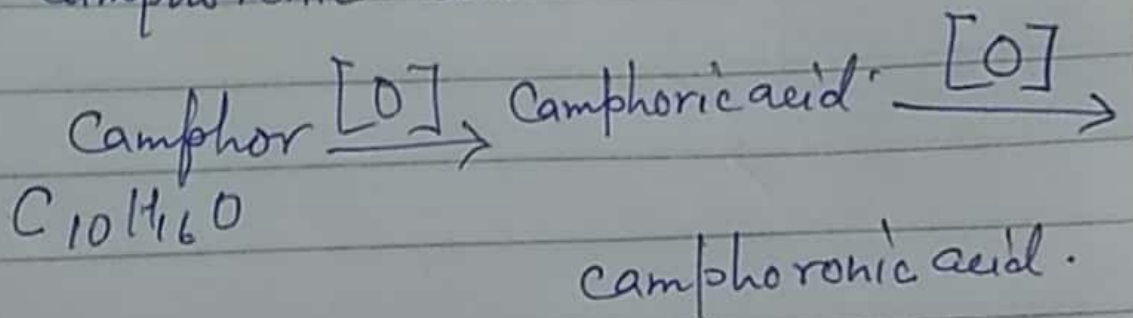 Camphor [O] → Camphoric acid [O] →
C10H16O
camphoronic acid.